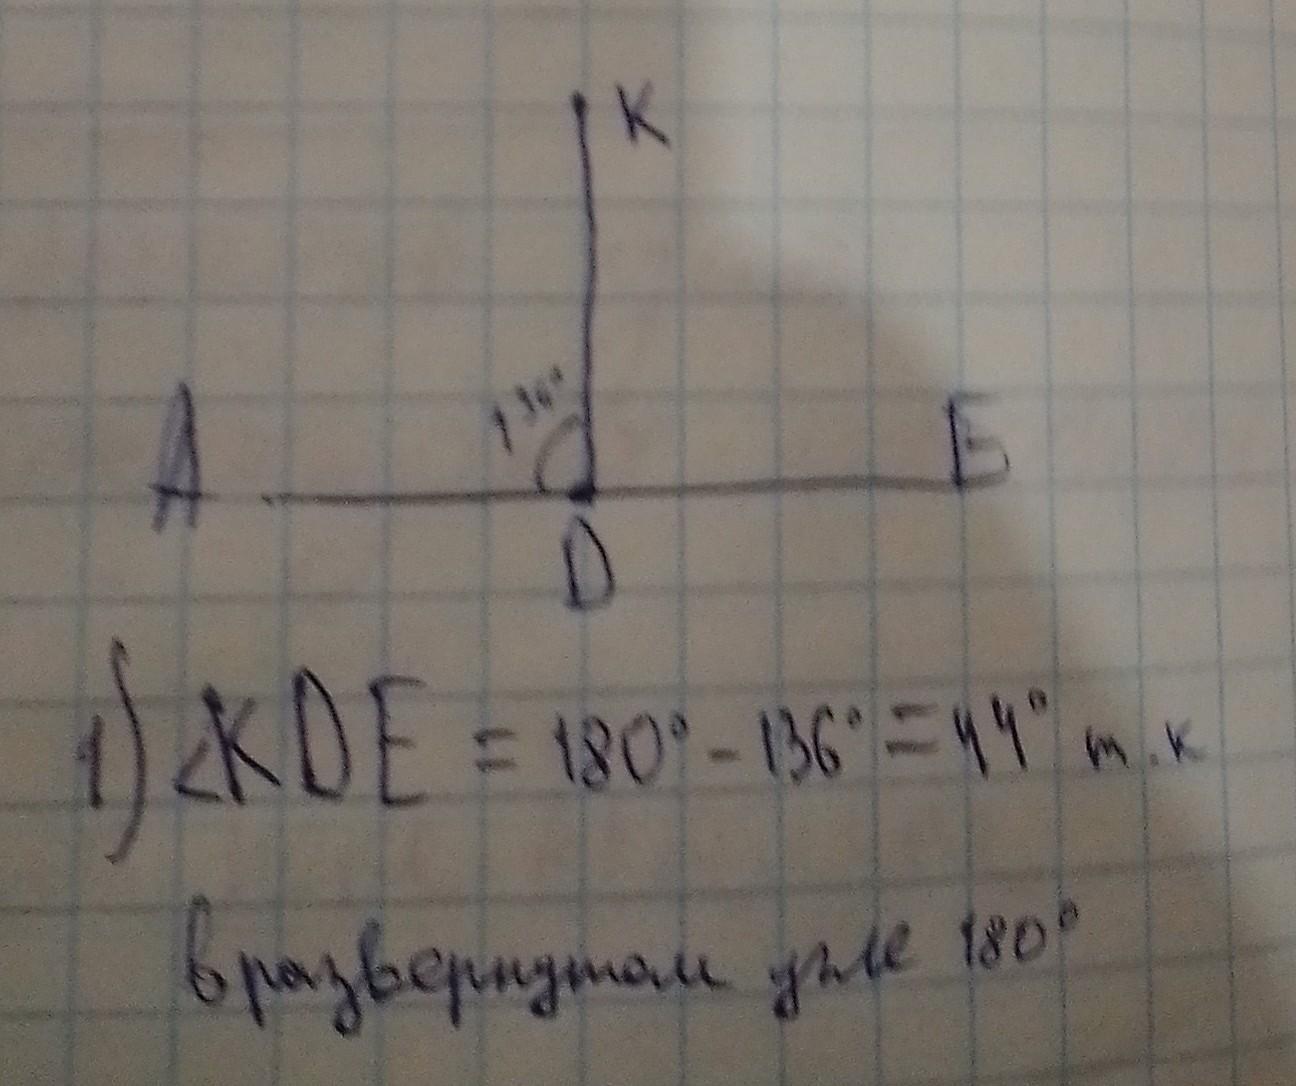 K
136°
A
E
D
1) ∠KDE = 180° - 136° = 44° т.к
в развернутом угле 180°